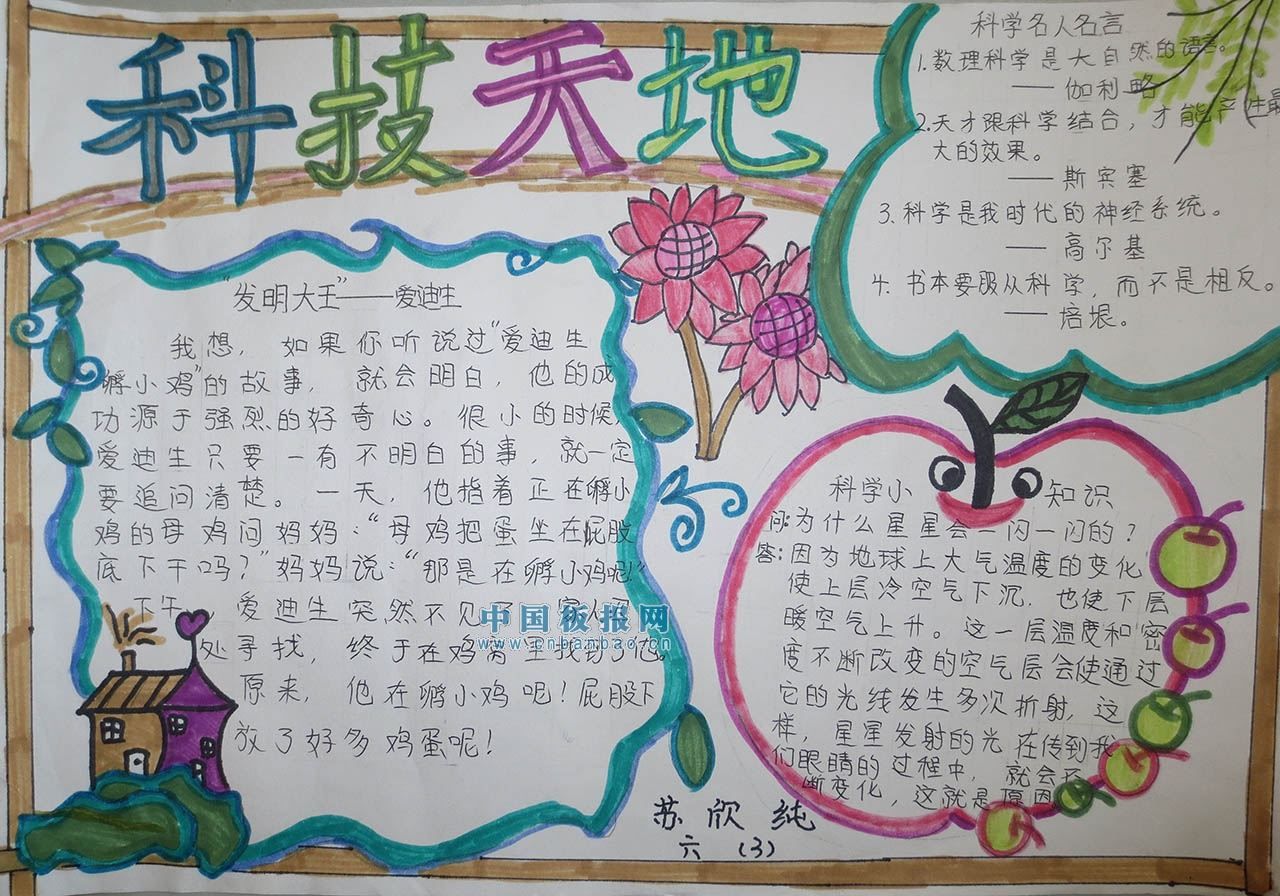 科技天地
"发明大王"——爱迪生
我想，如果你听说过"爱迪生
孵小鸡"的故事，就会明白，他的成
功源于强烈的好奇心。很小的时候，
爱迪生只要一有不明白的事，就一定
要追问清楚。一天，他指着正在孵小
鸡的母鸡问妈妈："母鸡把蛋坐在屁股
底下干吗？"妈妈说："那是在孵小鸡呢！"
下午，爱迪生突然不见了，家人
处寻找，终于在鸡窝里找到了他。
原来，他在孵小鸡呢！屁股下
放了好多鸡蛋呢！
中国板报网
www.cnbanbao.cn
科学名人名言
1.数理科学是大自然的语言。
——伽利略
2.天才跟科学结合，才能产生最
大的效果。
——斯宾塞
3.科学是我时代的神经系统。
——高尔基
4.书本要服从科学，而不是相反。
——培根。
科学小知识
问:为什么星星会一闪一闪的？
答:因为地球上大气温度的变化
使上层冷空气下沉，也使下层
暖空气上升。这一层温度和密
度不断改变的空气层会使通过
它的光线发生多次折射，这
样，星星发射的光在传到我
们眼睛的过程中，就会不
断变化，这就是原因
苏欣纯
六（3）